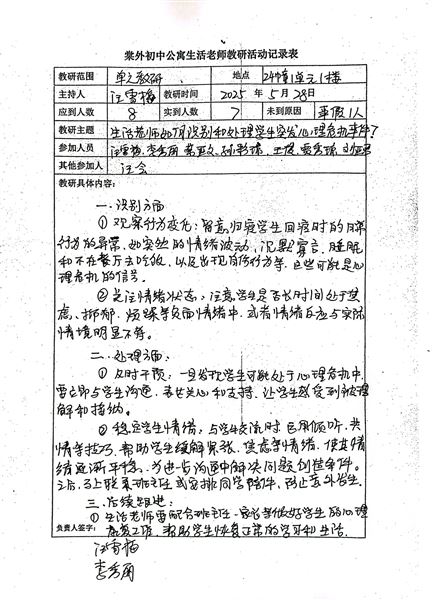 棠外初中公寓生活老师教研活动记录表
教研范围 单元教研 地点 24幢1单元1楼
主持人 汪雪梅 教研时间 2025年5月28日
应到人数 8 实到人数 7 未到原因 事假1人
教研主题 生活老师如何识别和处理学生突发心理危机事件
参加人员 汪雪梅、李秀丽
其他参加人 汪会
教研具体内容：
一、识别方面
①观察行为变化：留意归寝学生回寝时的日常
行为的异常，如突然的情绪波动，沉默寡言，睡眠
和不在餐厅去吃饭，以及出现自伤行为等，这些可能是心
理危机的信号。
②关注情绪状态：注意学生是否长时间处于焦
虑、抑郁、烦躁等负面情绪中，或者情绪反应与实际
情境明显不符。
二、处理方面：
①及时干预：一旦发现学生可能处于心理危机中，
要立即与学生沟通，表达关心和支持，让学生感受到被理
解和接纳。
②稳定学生情绪：与学生交流时运用倾听、共
情等技巧，帮助学生缓解紧张、焦虑等情绪，使其情
绪逐渐平稳，为进一步沟通中解决问题创造条件。
之后，马上联系班主任或安排同学陪伴，防止意外发生。
三、后续跟进：
①生活老师要配合班主任、家长等做好学生的心理
康复工作，帮助学生恢复正常的学习和生活。
负责人签字：
汪雪梅
李秀丽